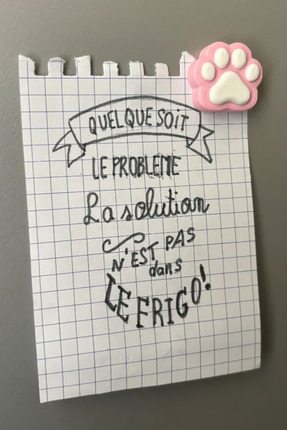 QUELQUE SOIT
LE PROBLEME
La solution
N'EST PAS
dans
LE FRIGO!